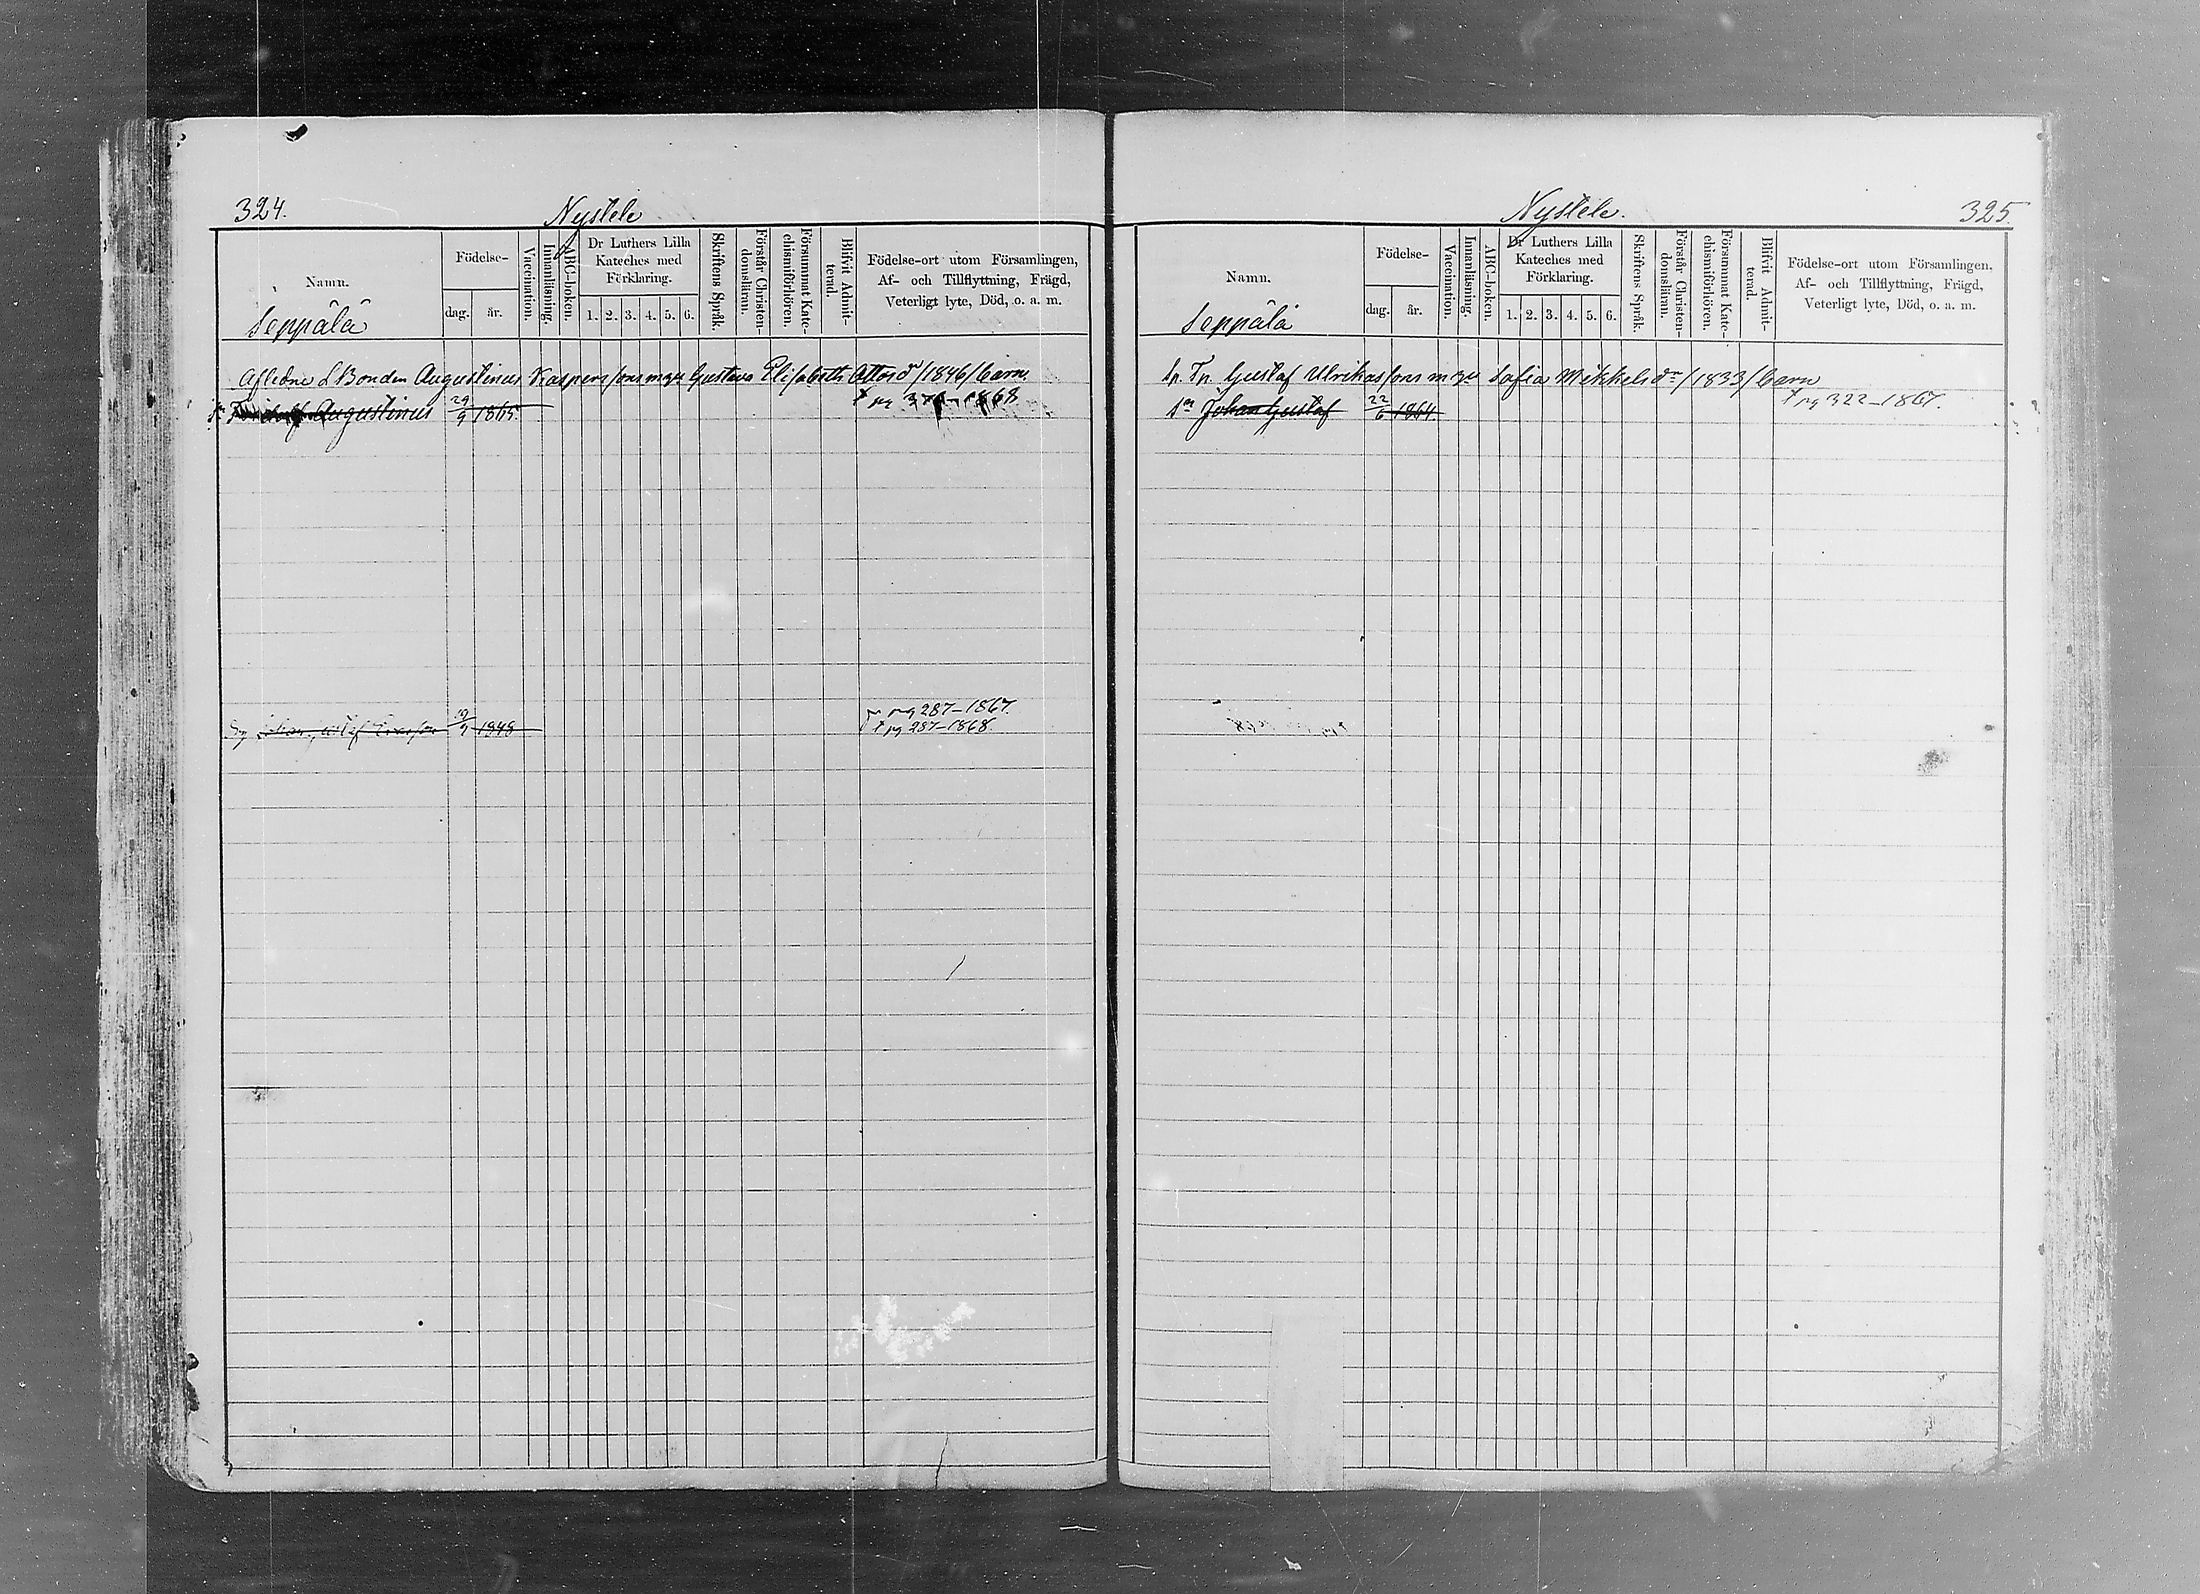 324.
Nystele
Namn.
Födelse-
dag.
år.
Vaccination.
Innanläsning.
ABC-boken.
Dr Luthers Lilla
Kateches med
Förklaring.
1. 2. 3. 4. 5. 6.
Skriftens Språk.
Förstår Christen-
domsläran.
Försummat Kate-
chismiförhören.
Blifvit Admit-
terad.
Födelse-ort utom Församlingen,
Af- och Tillflyttning, Frägd,
Veterligt lyte, Död, o. a. m.
Seppälä
Aflednе L Bonden Augustinus Kaspersson m gu Gustava Elisabeth /1846/ barn.
Augustinus 29/9 1865. 1868
pg 287-1867.
Gustaf 1848 pg 287-1868
Nystele.
325.
Namn.
Födelse-
dag.
år.
Vaccination.
Innanläsning.
ABC-boken.
Dr Luthers Lilla
Kateches med
Förklaring.
1. 2. 3. 4. 5. 6.
Skriftens Språk.
Förstår Christen-
domsläran.
Försummat Kate-
chismiförhören.
Blifvit Admit-
terad.
Födelse-ort utom Församlingen,
Af- och Tillflyttning, Frägd,
Veterligt lyte, Död, o. a. m.
Seppälä
Gustaf Ulrikasson m gu Sofia Mikkelsdr /1833/ barn
Sn Johan Gustaf 22/6 1864. pg 322-1867.